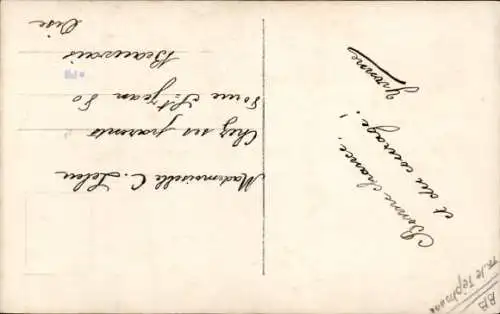 Bonne chance!
et du courage!
Yvonne
Mademoiselle C. Leleu
Chez ses parents
rue St. Jean 80
Beauvais
Oise
BB